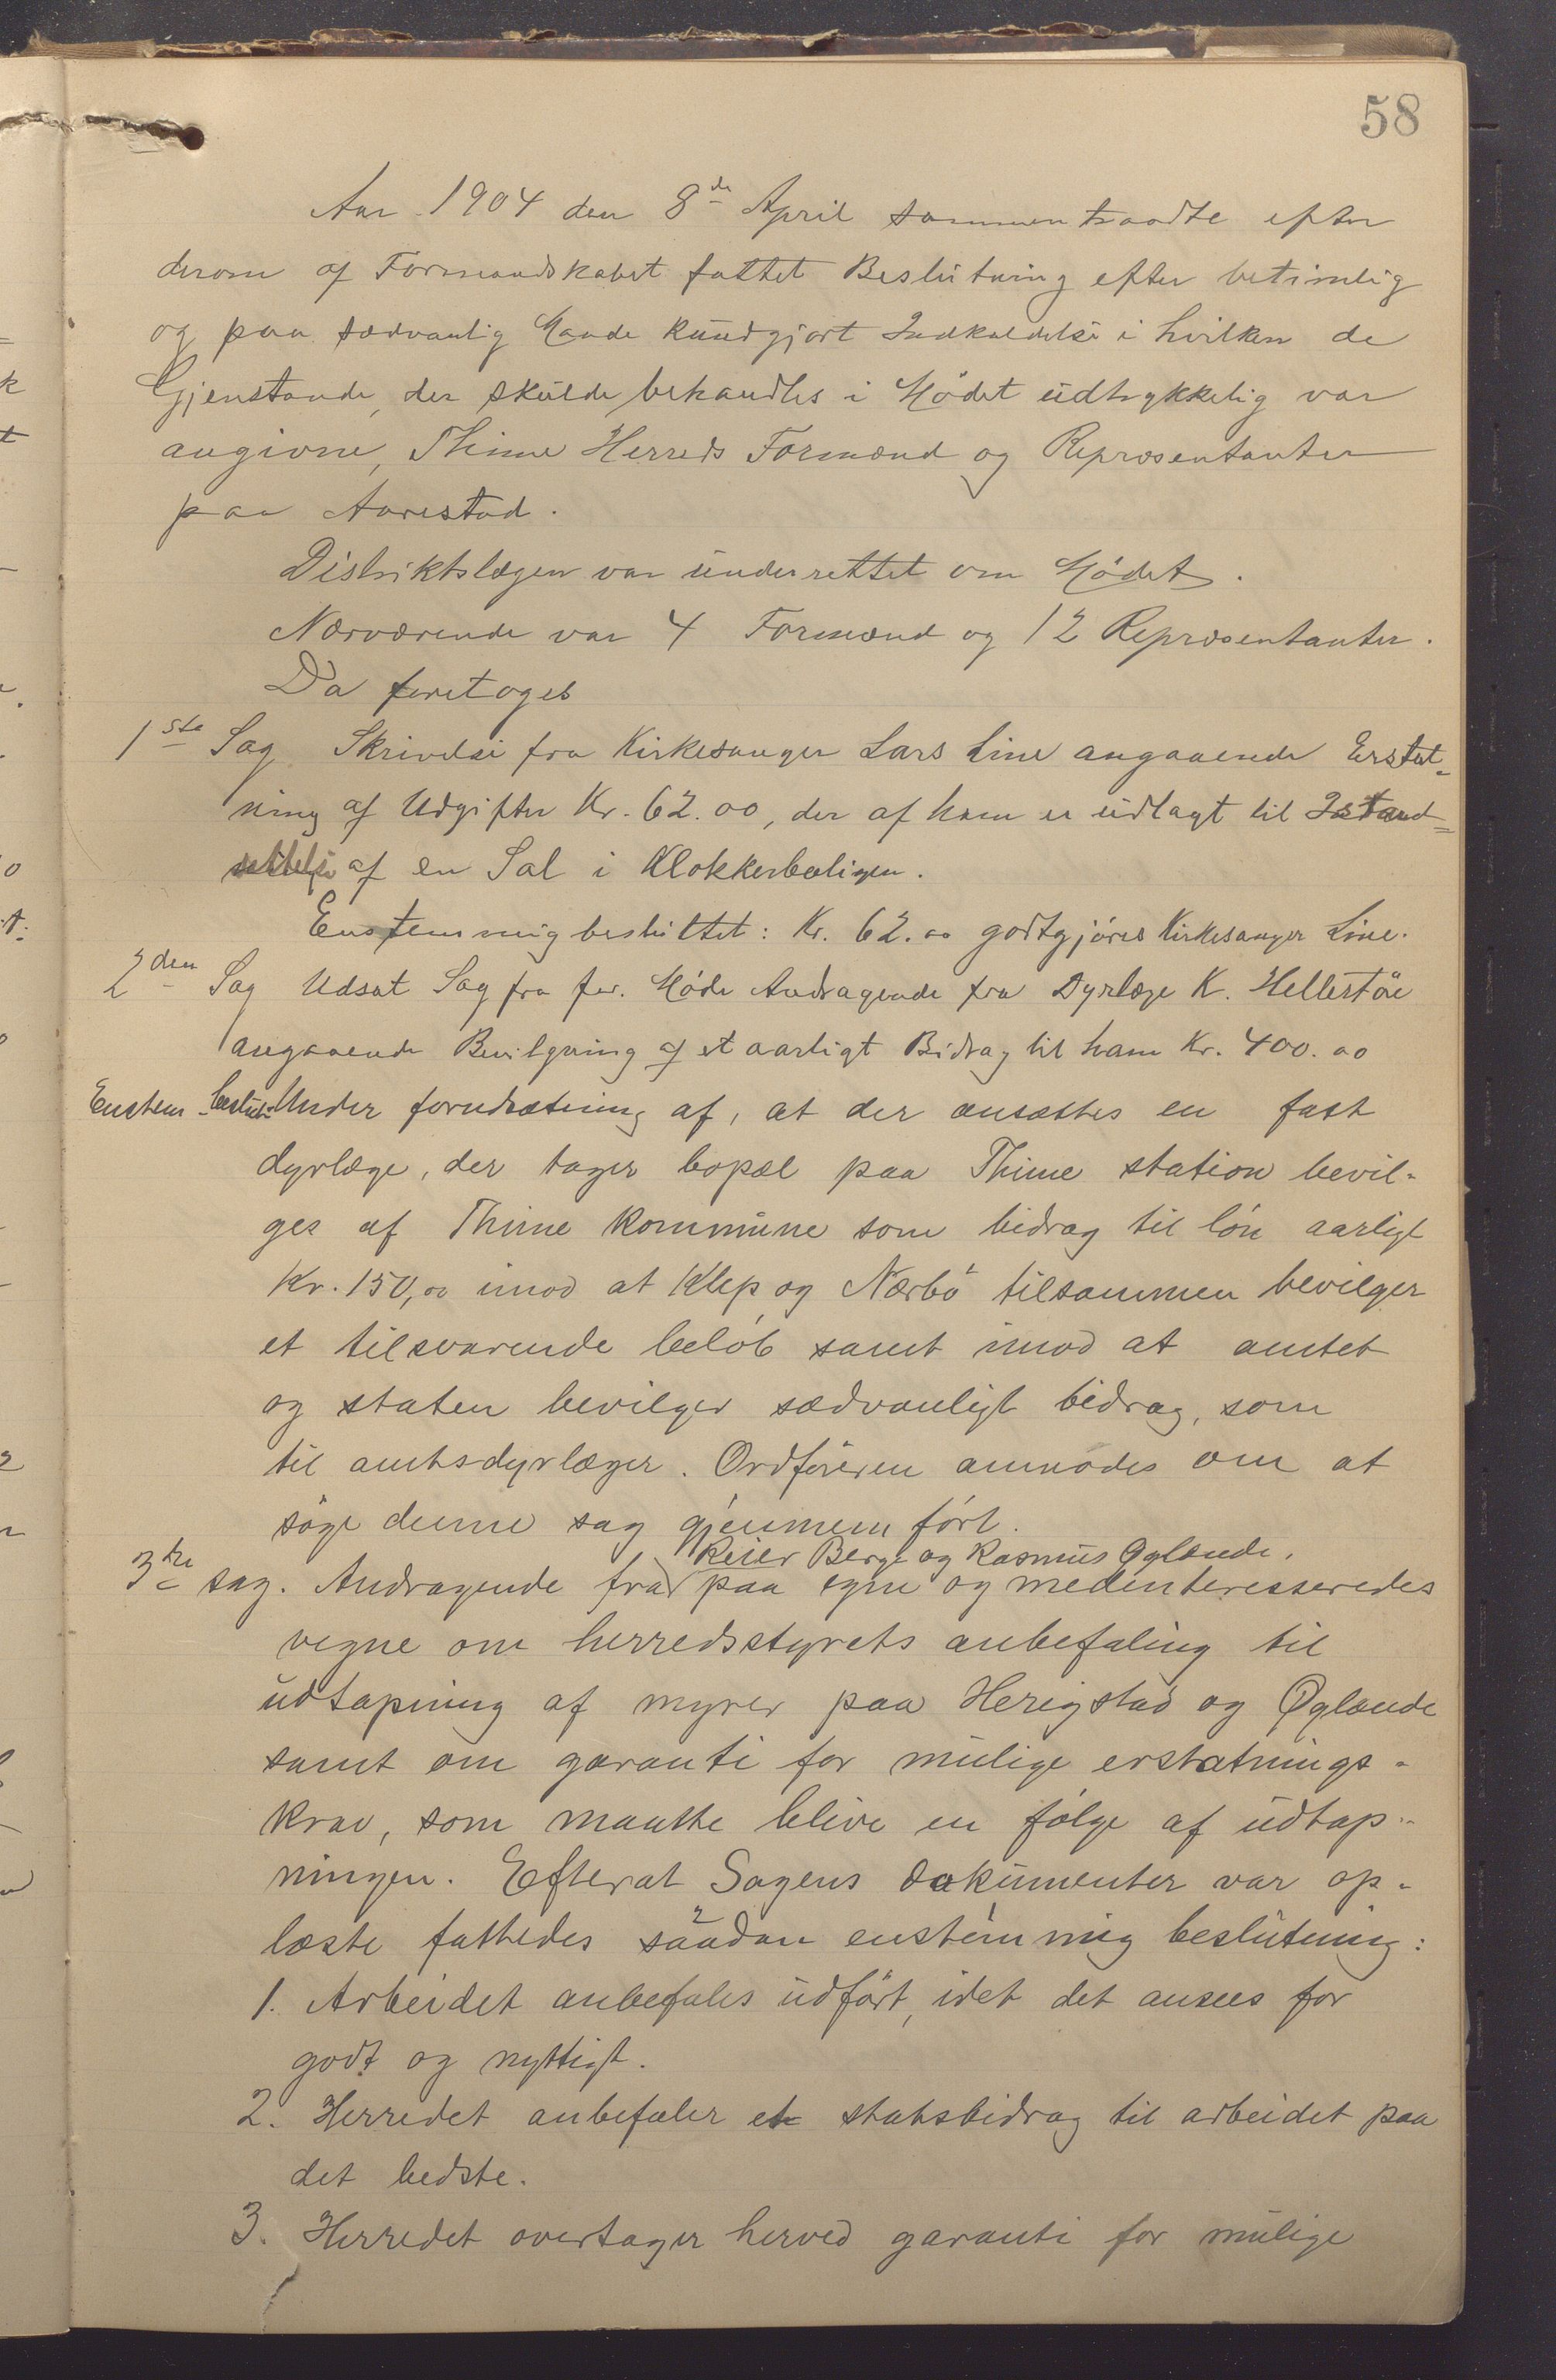 58
Aar 1904 den 8de April sammentraadte efter
derom af Formandskabet fattet Beslutning efter betimelig
og paa sædvanlig Maade kundgjort Indkaldelse i hvilken de
Gjenstande, der skulde behandles i Mødet udtrykkelig var
angivne, Thime Herreds Formænd og Repræsentanter
paa Aarestad.
Distriktslægen var underrettet om Mødet.
Nærværende var 4 Formænd og 12 Repræsentanter.
Da foretoges
1ste Sag Skrivelse fra Kirkesanger Lars Line angaaende Erstat-
ning af Udgifter Kr. 62.00, der af ham er udlagt til Istand-
sættelse af en Sal i Klokkerboligen.
Enstemmig besluttet: Kr. 62.00 godtgjøres Kirkesanger Line.
2den Sag Udsat Sag fra for. Møde Andragende fra Dyrlæge K. Hellestöe
angaaende Bevilgning af et aarligt Bidrag til ham Kr. 400.00
Enstem. beslut. Under forudsætning af, at der ansættes en fast
dyrlæge, der tager bopæl paa Thime station bevil-
ges af Thime kommune som bidrag til løn aarligt
Kr. 150,00 imod at Klep og Nærbø tilsammen bevilger
et tilsvarende beløb samt imod at amtet
og staten bevilger sædvanligt bidrag, som
til amtsdyrlæger. Ordføreren anmodes om at
søge denne sag gjennemført.
Reier Berge og Rasmus Øglænde.
3die sag. Andragende fra paa egne og medinteresseredes
vegne om herredsstyrets anbefaling til
udtapning af myrer paa Herigstad og Øglænde
samt om garanti for mulige erstatnings-
krav, som maatte blive en følge af udtap-
ningen. Efterat Sagens dokumenter var op-
læste fattedes saadan enstemmig beslutning:
1. Arbeidet anbefales udført, idet det ansees for
godt og nyttigt.
2. Herredet anbefaler et statsbidrag til arbeidet paa
det bedste.
3. Herredet overtager herved garanti for mulige